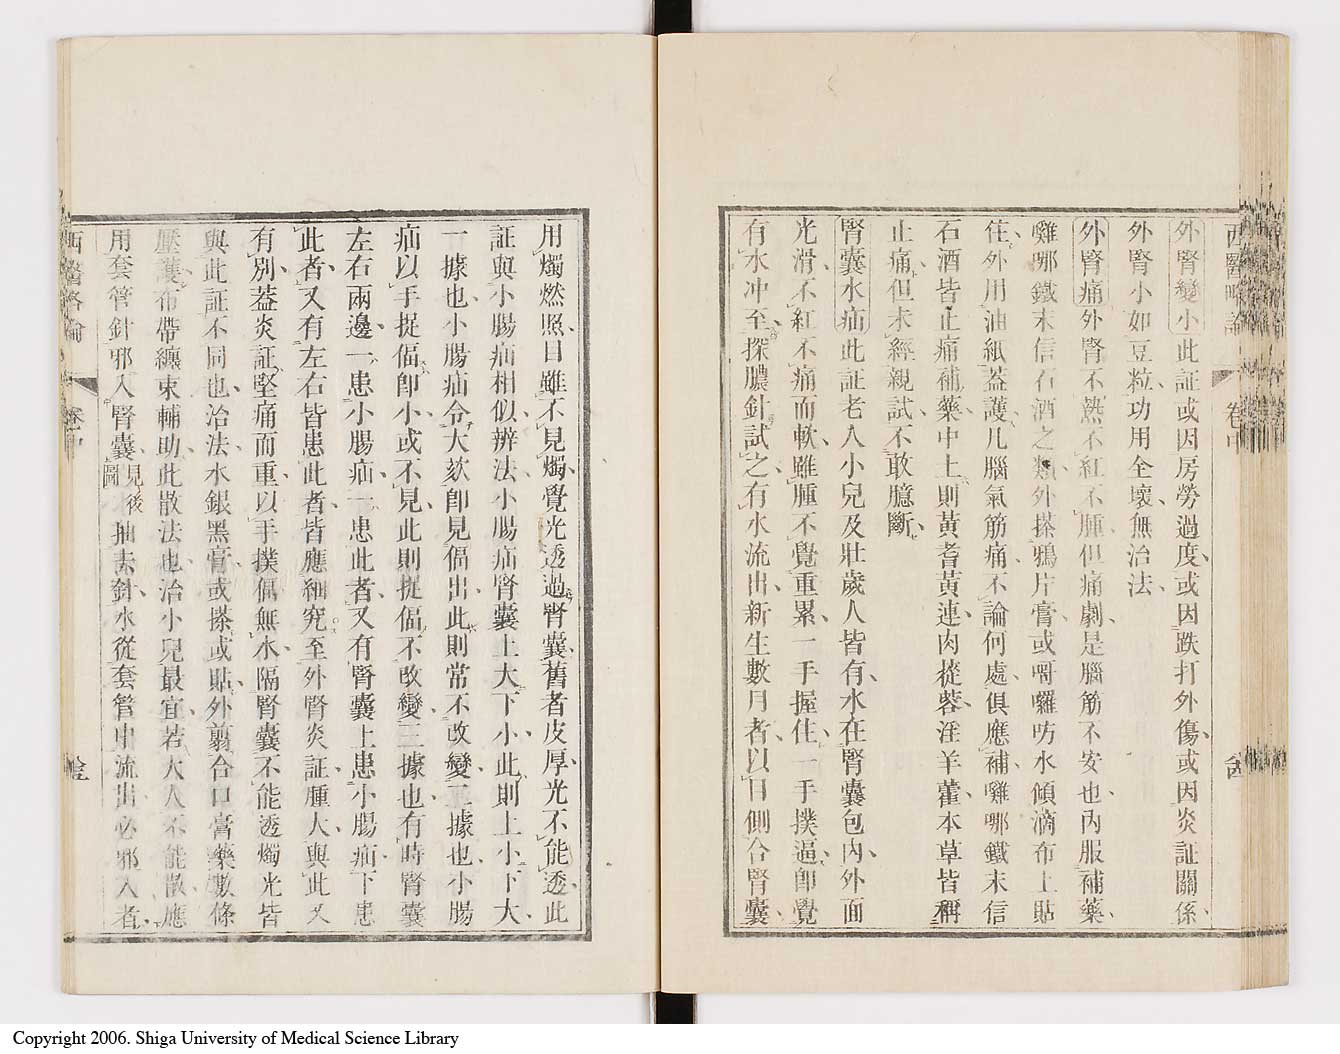 外腎變小此証或因房勞過度或因跌打外傷或因炎証關係
外腎小如豆粒功用全壞無治法
外腎痛外腎不熱不紅不腫但痛劇是腦筋不安也內服補藥
囄哪鐵末信石酒之類外搽鴉片膏或哥囄吩水傾滴布上貼
住外用油紙蓋護凡腦氣筋痛不論何處俱應補囄哪鐵末信
石酒皆止痛補藥中土則黃耆黃連肉蓯蓉淫羊藿本草皆稱
止痛但未經親試不敢臆斷
腎囊水疝此証老人小兒及壯歲人皆有水在腎囊包內外面
光滑不紅不痛而軟雖腫不覺重累一手握住一手撲逼卽覺
有水冲至探膿針試之有水流出新生數月者以日側合腎囊
西醫略論 卷中
用燭燃照目雖不見燭覺光透過腎囊舊者皮厚光不能透此
証與小腸疝相似辨法小腸疝腎囊上大下小此則上小下大
一據也小腸疝令大欬卽見偪出此則常不改變二據也小腸
疝以手捉偪卽小或不見此則捉偪不改變三據也有時腎囊
左右兩邊一患小腸疝一患此者又有腎囊上患小腸疝下患
此者又有左右皆患此者皆應細究至外腎炎証腫大與此又
有別蓋炎証堅痛而重以手撲偪無水隔腎囊不能透燭光皆
與此証不同也治法水銀黑膏或搽或貼外翦合口膏藥數條
壓護布帶纏束輔助此散法也治小兒最宜若大人不能散應
用套管針邪入腎囊見後圖抽去針水從套管中流出必邪入者
西醫略論 卷中
Copyright 2006. Shiga University of Medical Science Library